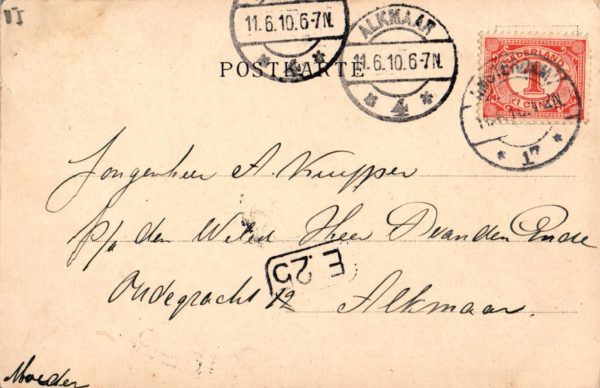 II
11.6.10.6-7N.
4
ALKMAAR
11.6.10.6-7N.
4
NEDERLAND
1
CENT
17
POSTKARTE
Jongenheer A. Kuijper
p/a den WelEd Heer D van den Ende
E.25
Oudegracht 12 Alkmaar.
Moeder